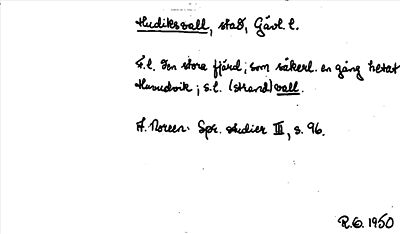 Hudiksvall, stad, Gävl. l.
F. l. den stora fjärd, som säkerl. en gång hetat
Huvudvik; s. l. (strand)vall.
A. Noreen. Spr. studier III, s. 96.
R.G. 1950